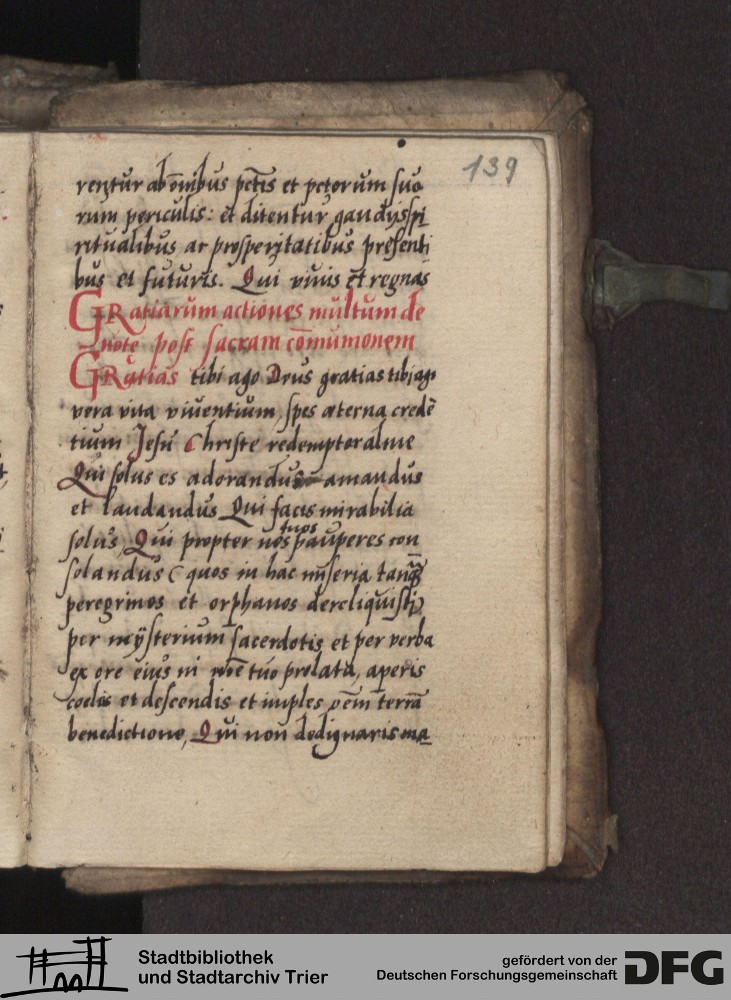 139
rentur ab oĩbus pctīs et pctorum suo
rum periculis: et ditentur gaudijs spi
ritualibus ac prosperitatibus presenti
bus et futuris. Qui viuis et regnas
GRatiarum actiones multum de
uote post sacram cōmunionem
GRatias tibi ago Deus gratias tibi ago
vera vita viuentium, spes æterna credē
tium Jesu Christe redemptor alme
Qui solus es adorandus amandus
et laudandus Qui facis mirabilia
solus, Qui propter nos tuos pauperes con
solandus (quos in hac miseria tanq̃
peregrinos et orphanos dereliquisti)
per mÿsterium sacerdotis et per verba
ex ore eius in noīe tuo prolata, aperis
coelos et descendis et imples oēm terrā
benedictione, Qui non dedignaris ma
Stadtbibliothek
und Stadtarchiv Trier
gefördert von der
Deutschen Forschungsgemeinschaft
DFG